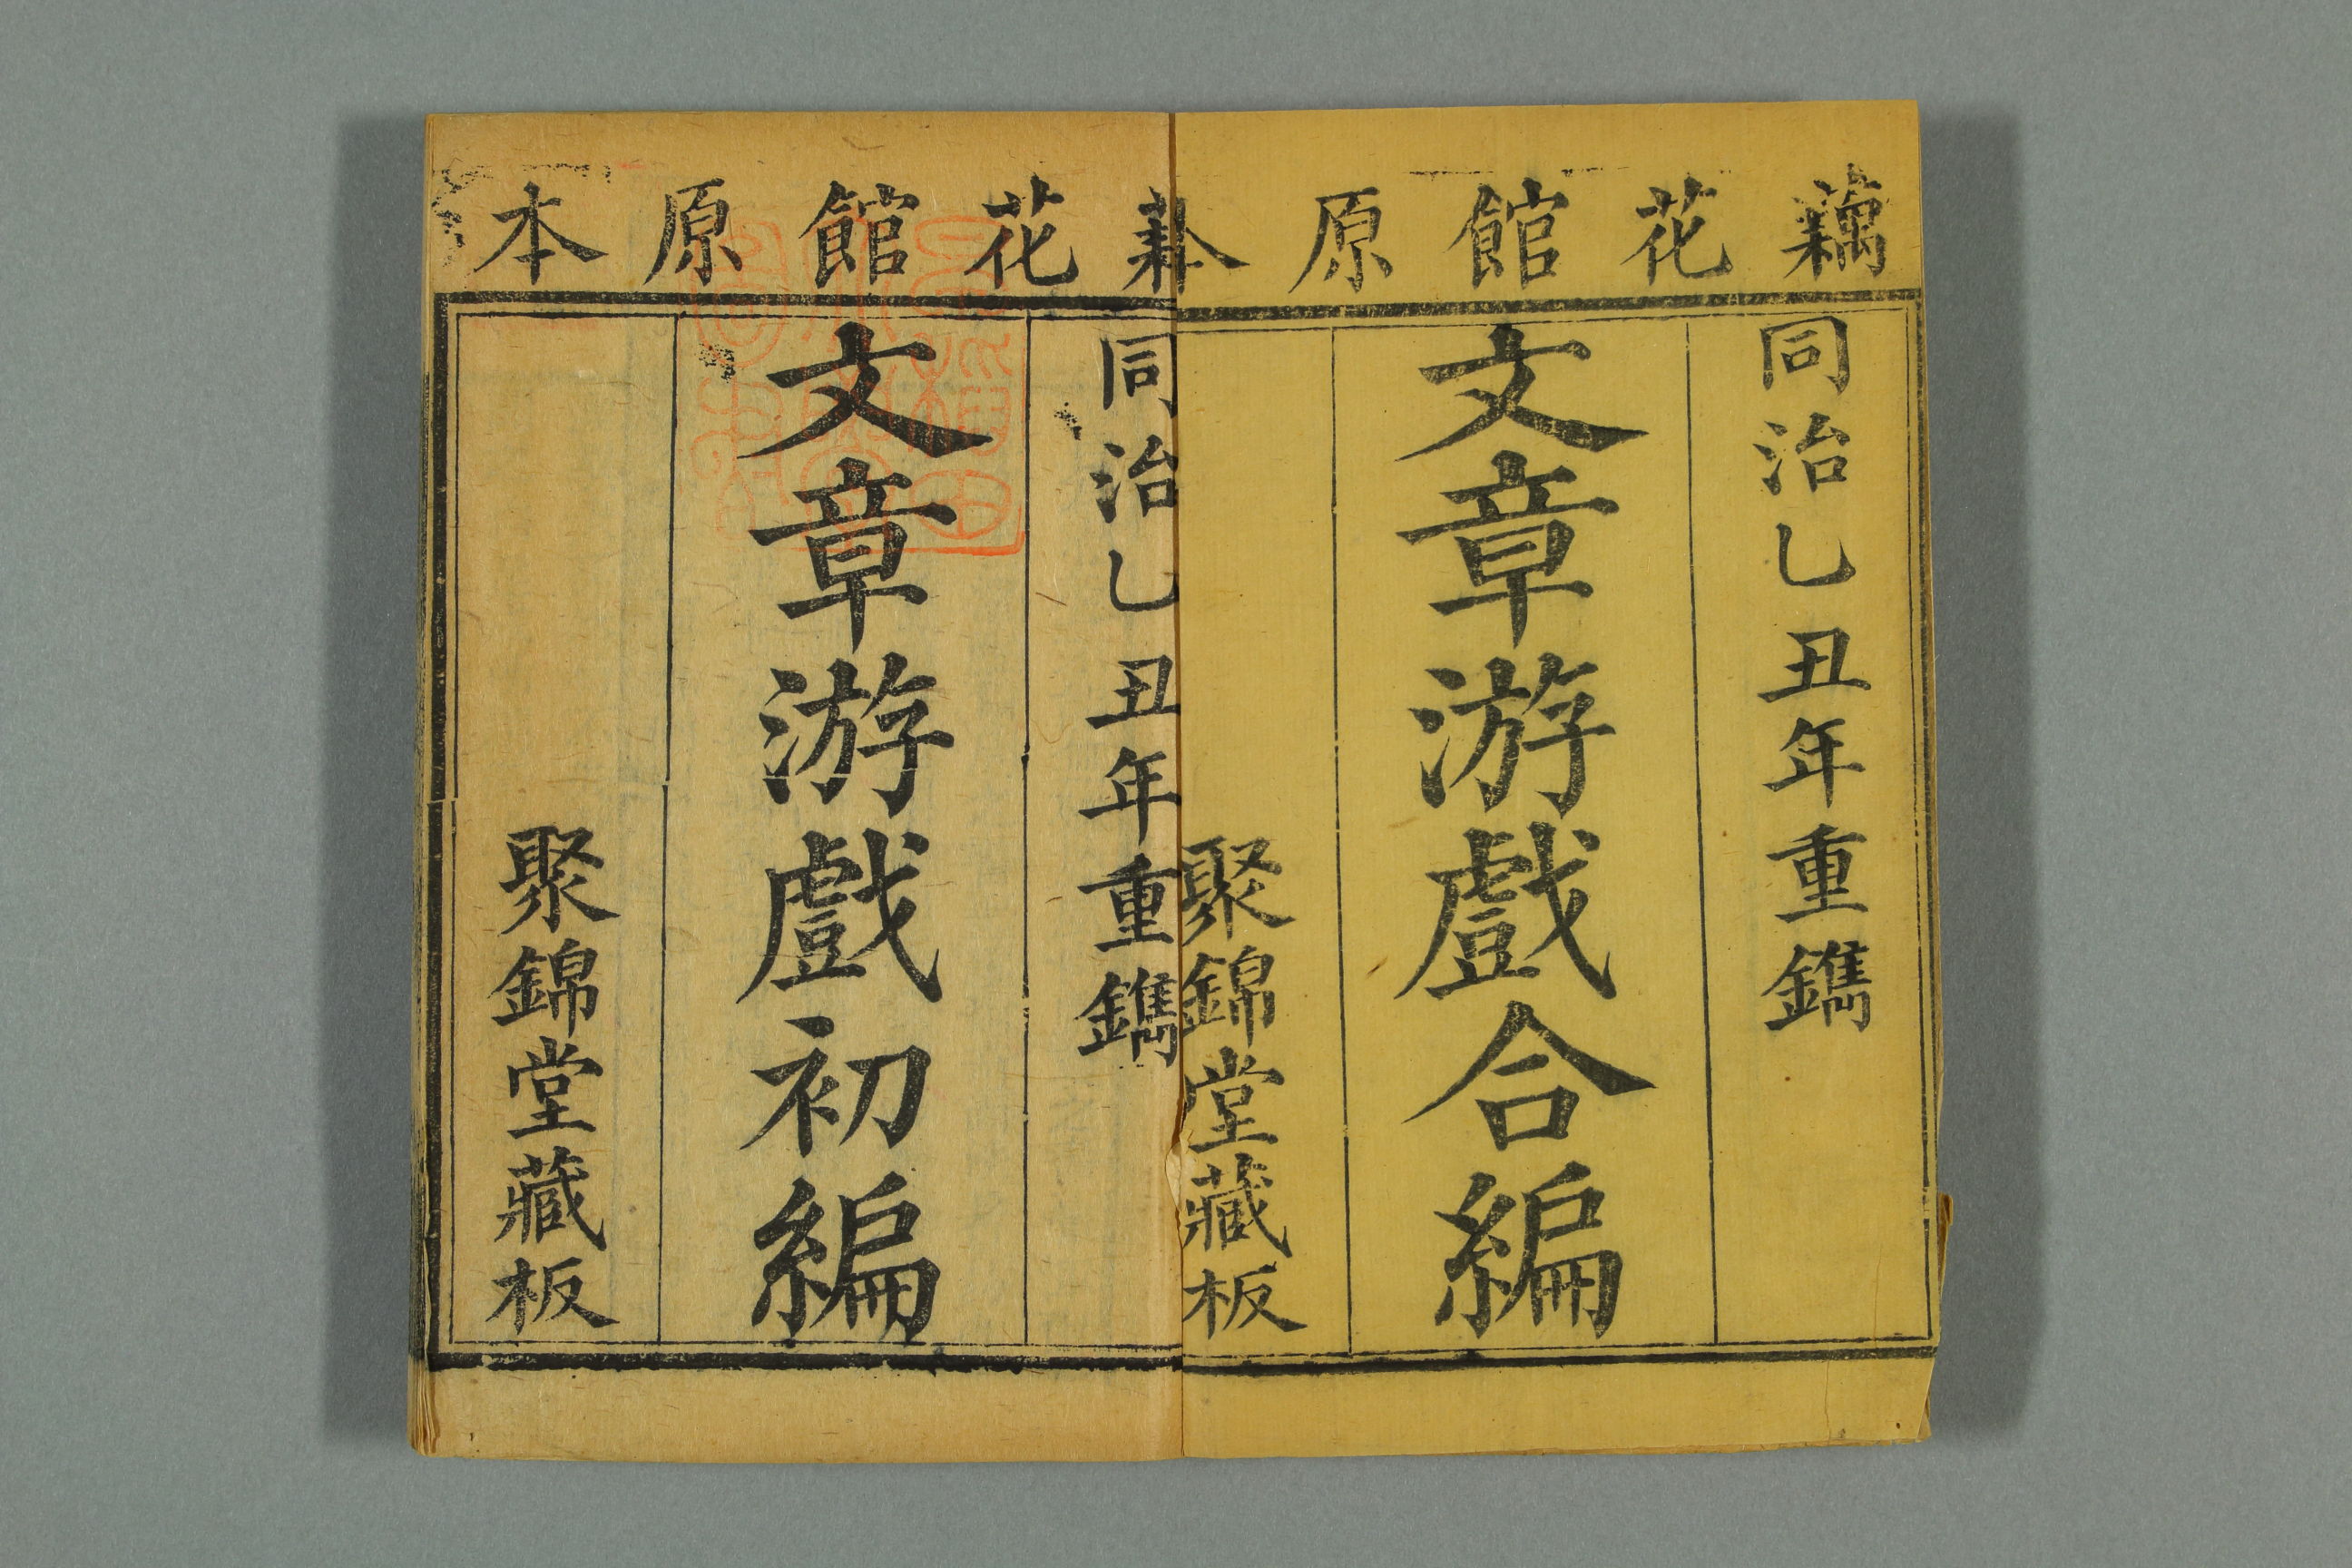 藕花館原本
同治乙丑年重鐫
文章游戲合編
聚錦堂藏板
藕花館原本
同治乙丑年重鐫
文章游戲初編
聚錦堂藏板